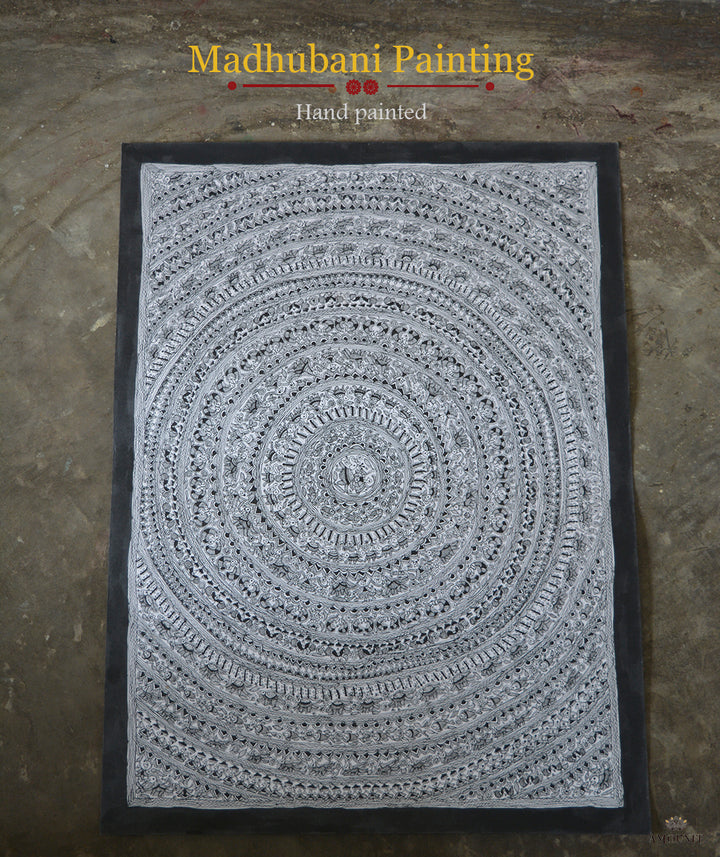 Madhubani Painting
Hand painted